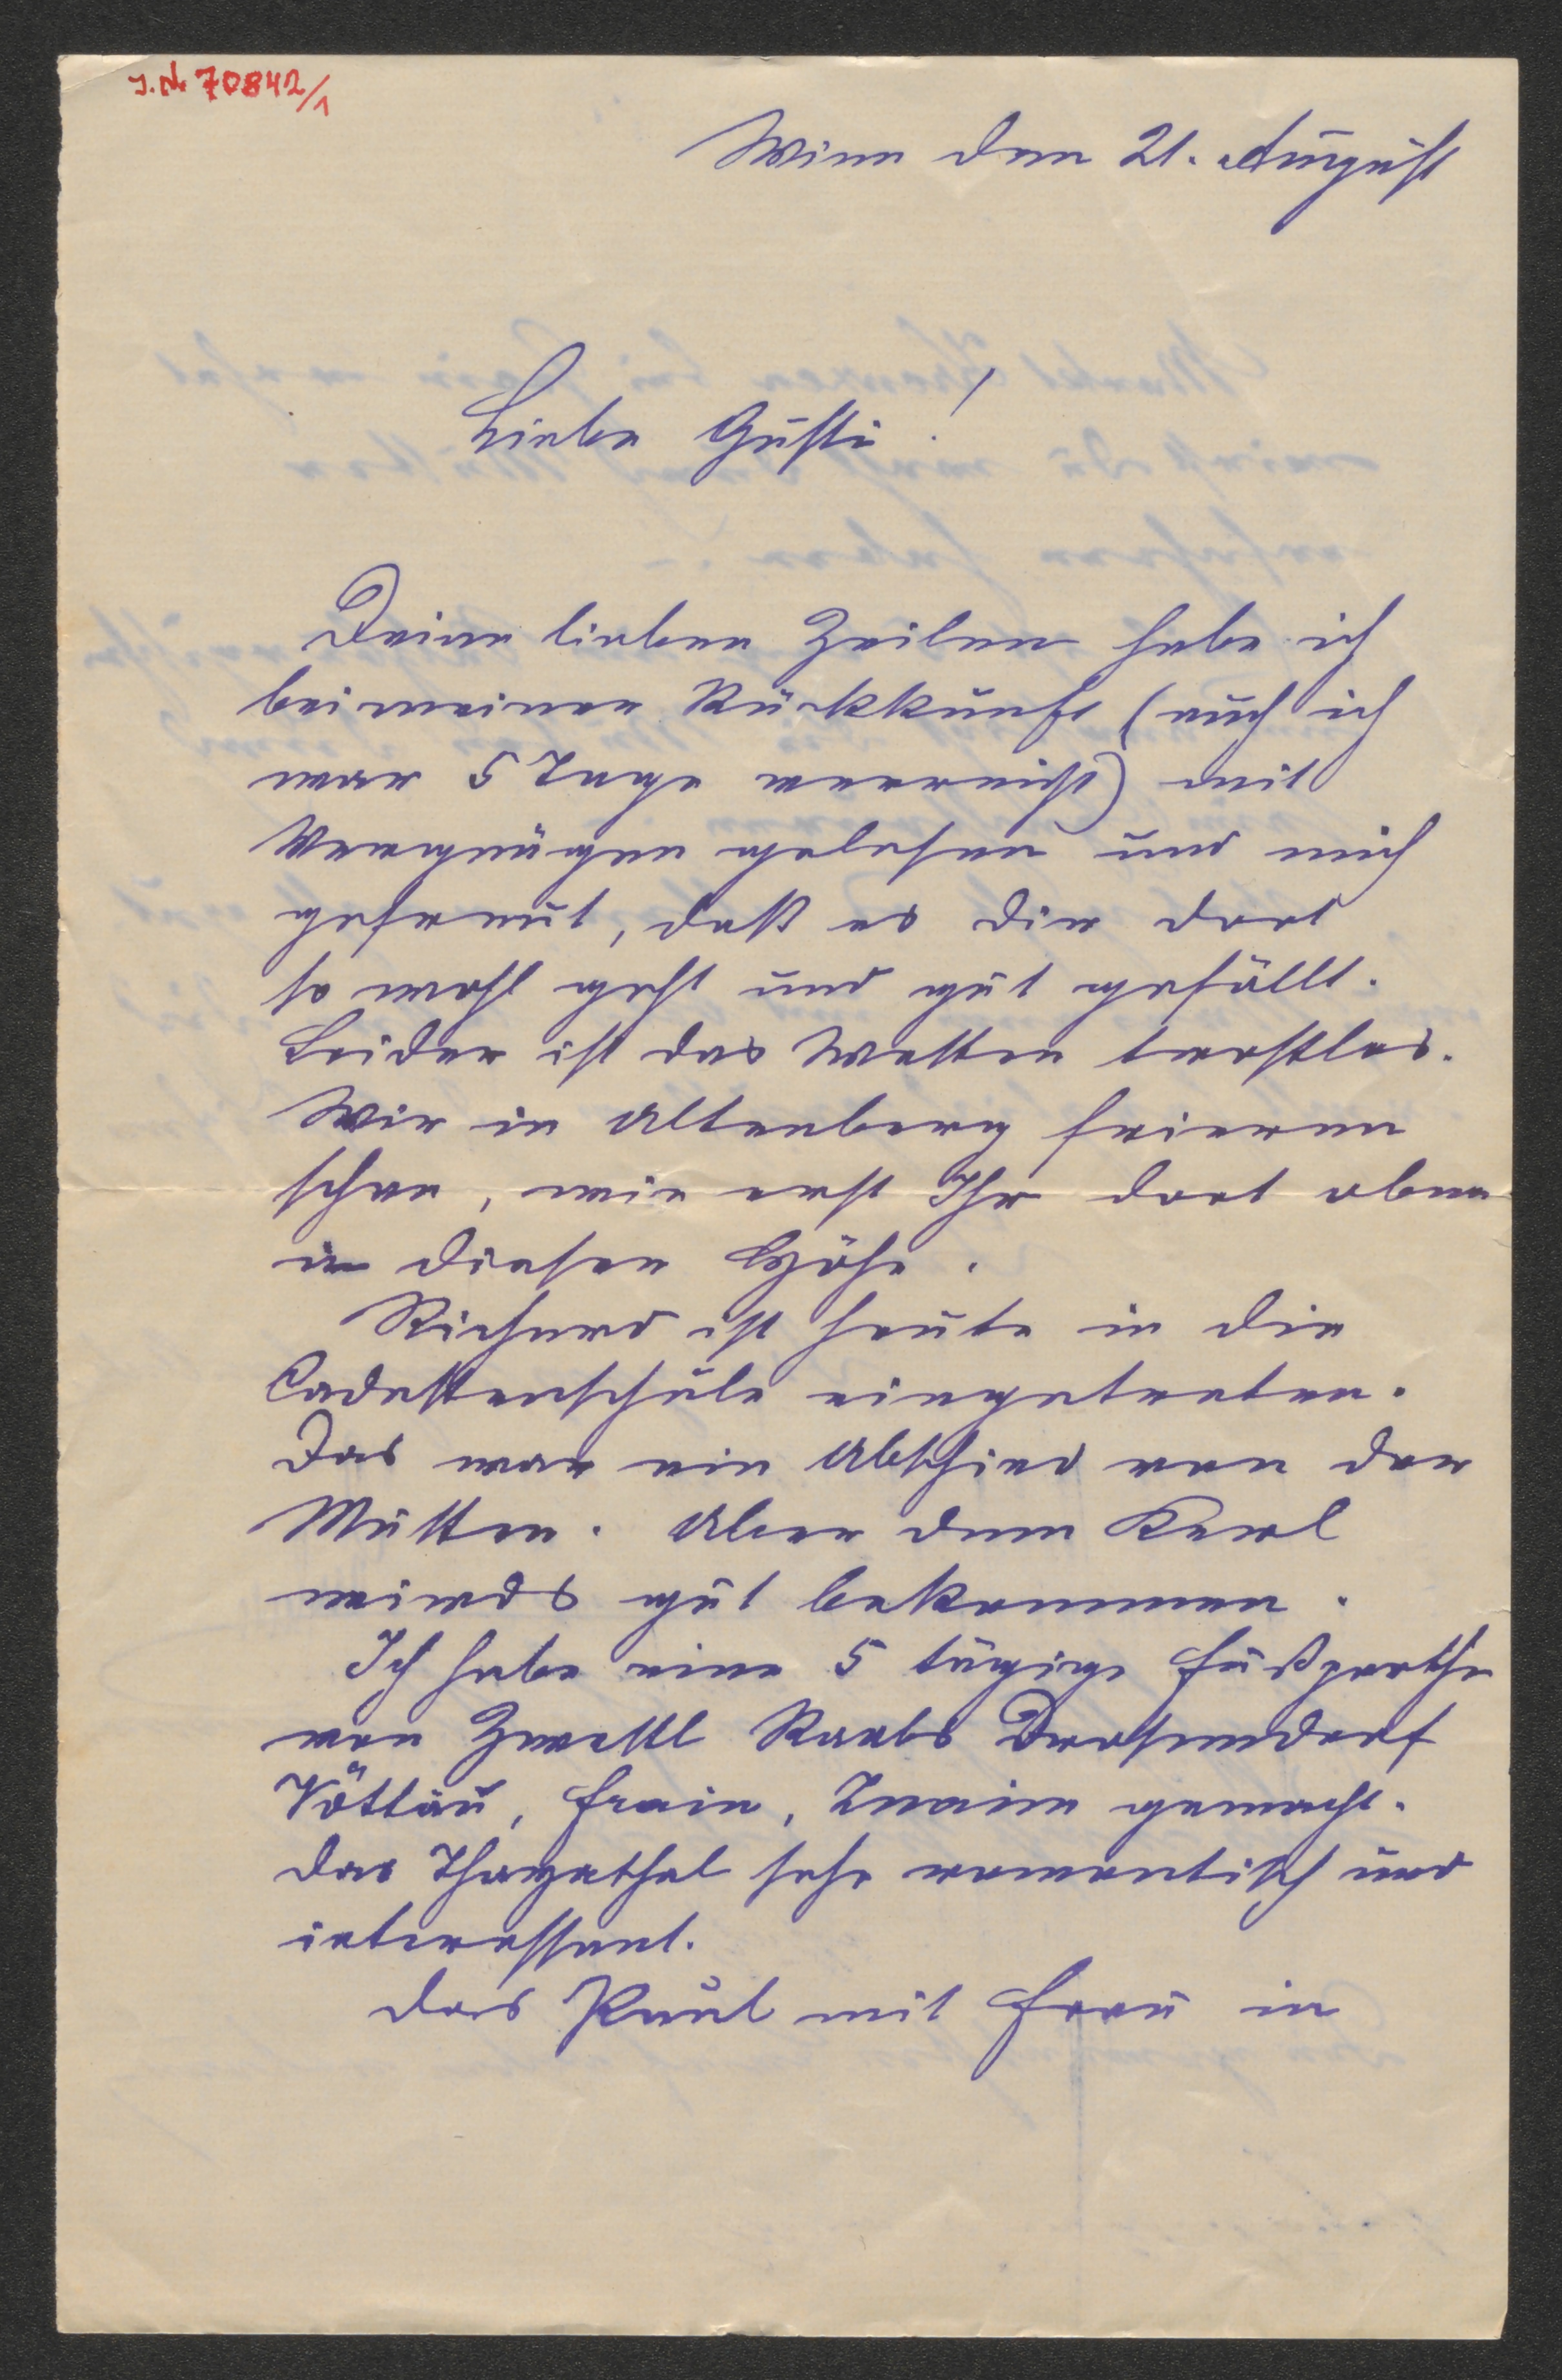 J. N. 70842/1
Wien den 21. August
Liebe Gusti!
Deine lieben Zeilen habe ich
bei meiner Rückkunft (auch ich
war 5 Tage verreist) mit
Vergnügen gelesen und mich
gefreut, daß es dir dort
so wohl geht und gut gefällt.
Leider ist das Wetter trostlos.
Wir in Altenberg frieren
schon, wie erst Ihr dort oben
in dieser Höhe.
Richard ist heute in die
Cadettenschule eingetreten.
Das war ein Abschied von der
Mutter. Aber dem Kerl
wirds gut bekommen.
Ich habe eine 5 tägige Fußparthie
von Zwettl Raabs Drosendorf
Vöttau, Frain, Znaim gemacht.
das Thayathal sehr romantisch und
interessant.
das Paul mit Frau in